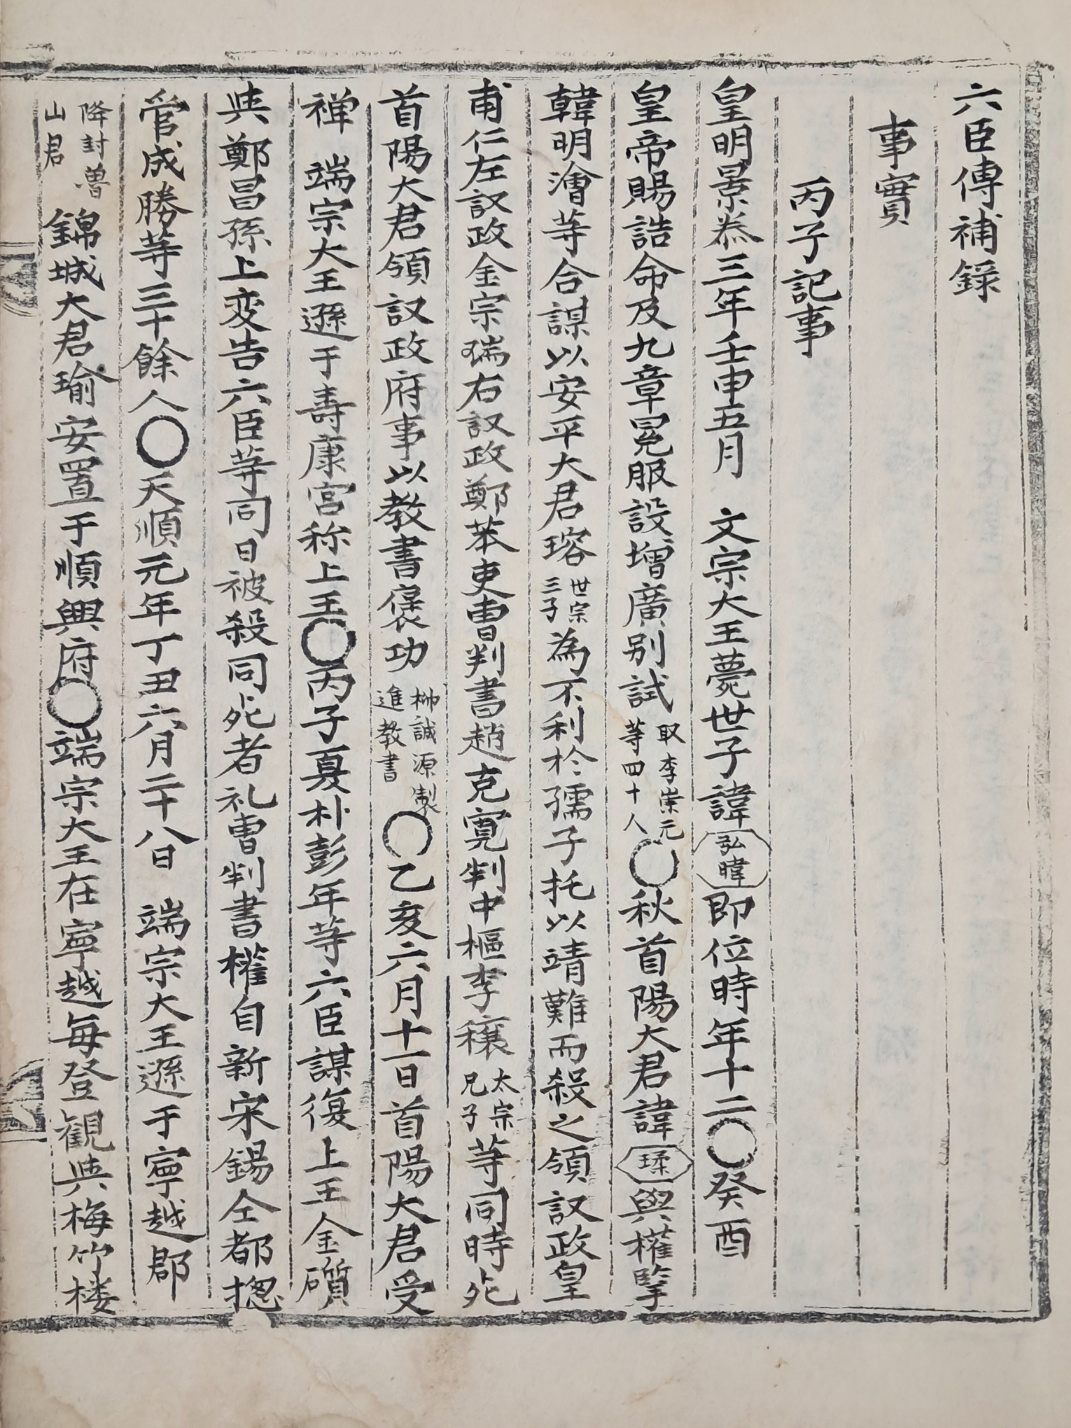 六臣傳補錄
事實
丙子記事
皇明景泰三年壬申五月 文宗大王薨世子諱弘暐即位時年十二〇癸酉
皇帝賜誥命及九章冕服設增廣别試取李崇元等四十人〇秋首陽大君諱瑈與權擥
韓明澮等合謀以安平大君瑢世宗三子為不利於孺子托以靖難而殺之領議政皇
甫仁左議政金宗瑞右議政鄭苯吏曹判書趙克寬判中樞李穰太宗兄子等同時死
首陽大君領議政府事以教書褒功柳誠源製進教書〇乙亥六月十一日首陽大君受
禅 端宗大王遜于壽康宮称上王〇丙子夏朴彭年等六臣謀復上王金礩
與鄭昌孫上变告六臣等同日被殺同死者礼曹判書權自新宋鍚仝都捴
管成勝等三十餘人〇天順元年丁丑六月二十八日 端宗大王遜于寧越郡
降封魯山君錦城大君瑜安置于順興府〇端宗大王在寧越每登觀與梅竹楼